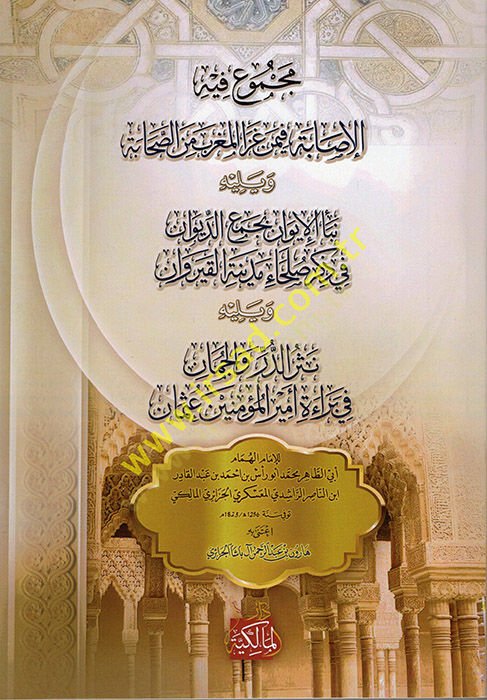 مجموع فيه
الإصابة فيمن غزا المغرب من الصحابة
ويليه
نبأ الإيوان بجمع الديوان
في ذكر صلحاء مدينة القيروان
ويليه
نثر الدر والجمان
في براءة أمير المؤمنين عثمان
للإمام الهمام
أبي الطاهر محمد أبو رأس بن احمد بن عبد القادر
ابن الناصر الراشدي المعسكري الجزائري المالكي
توفي سنة
اعتنى به
هارون بن عبد الرحمن آل باشا الجزائري
دار
المالكية